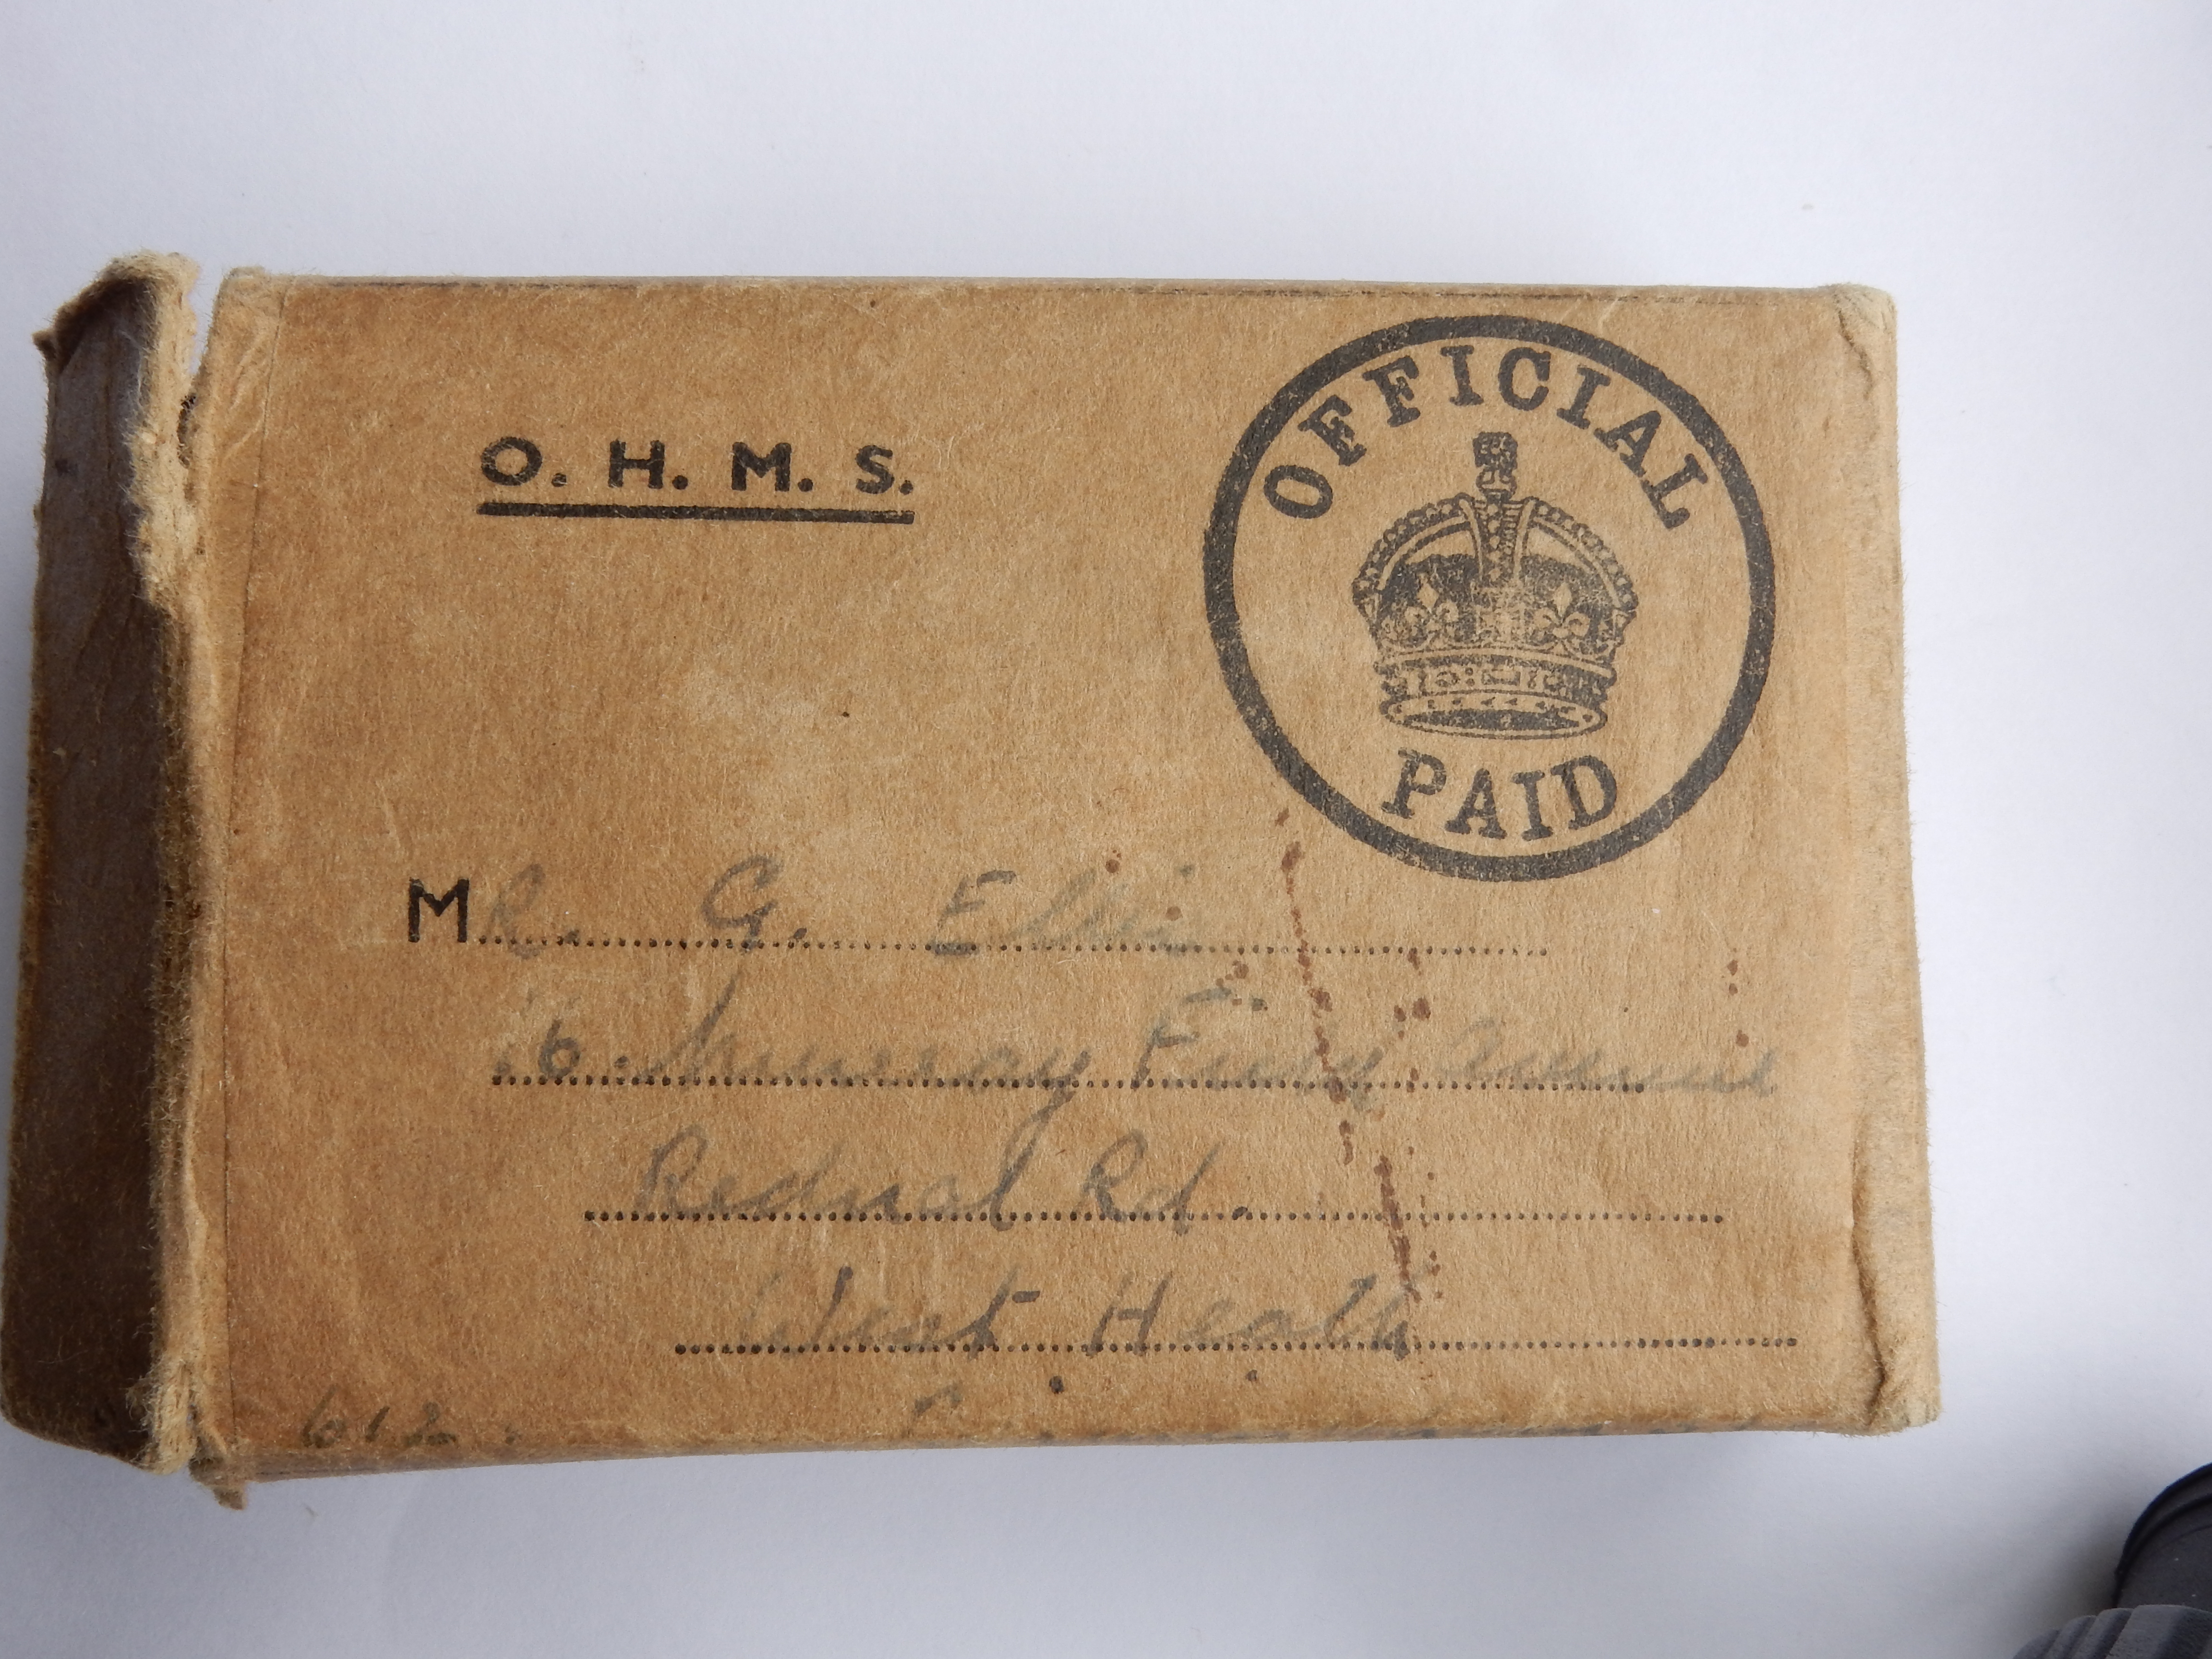 O. H. M. S.
OFFICIAL
PAID
MR. G. Ellis
6. Murray Avenue
Rednal Rd.
West Heath